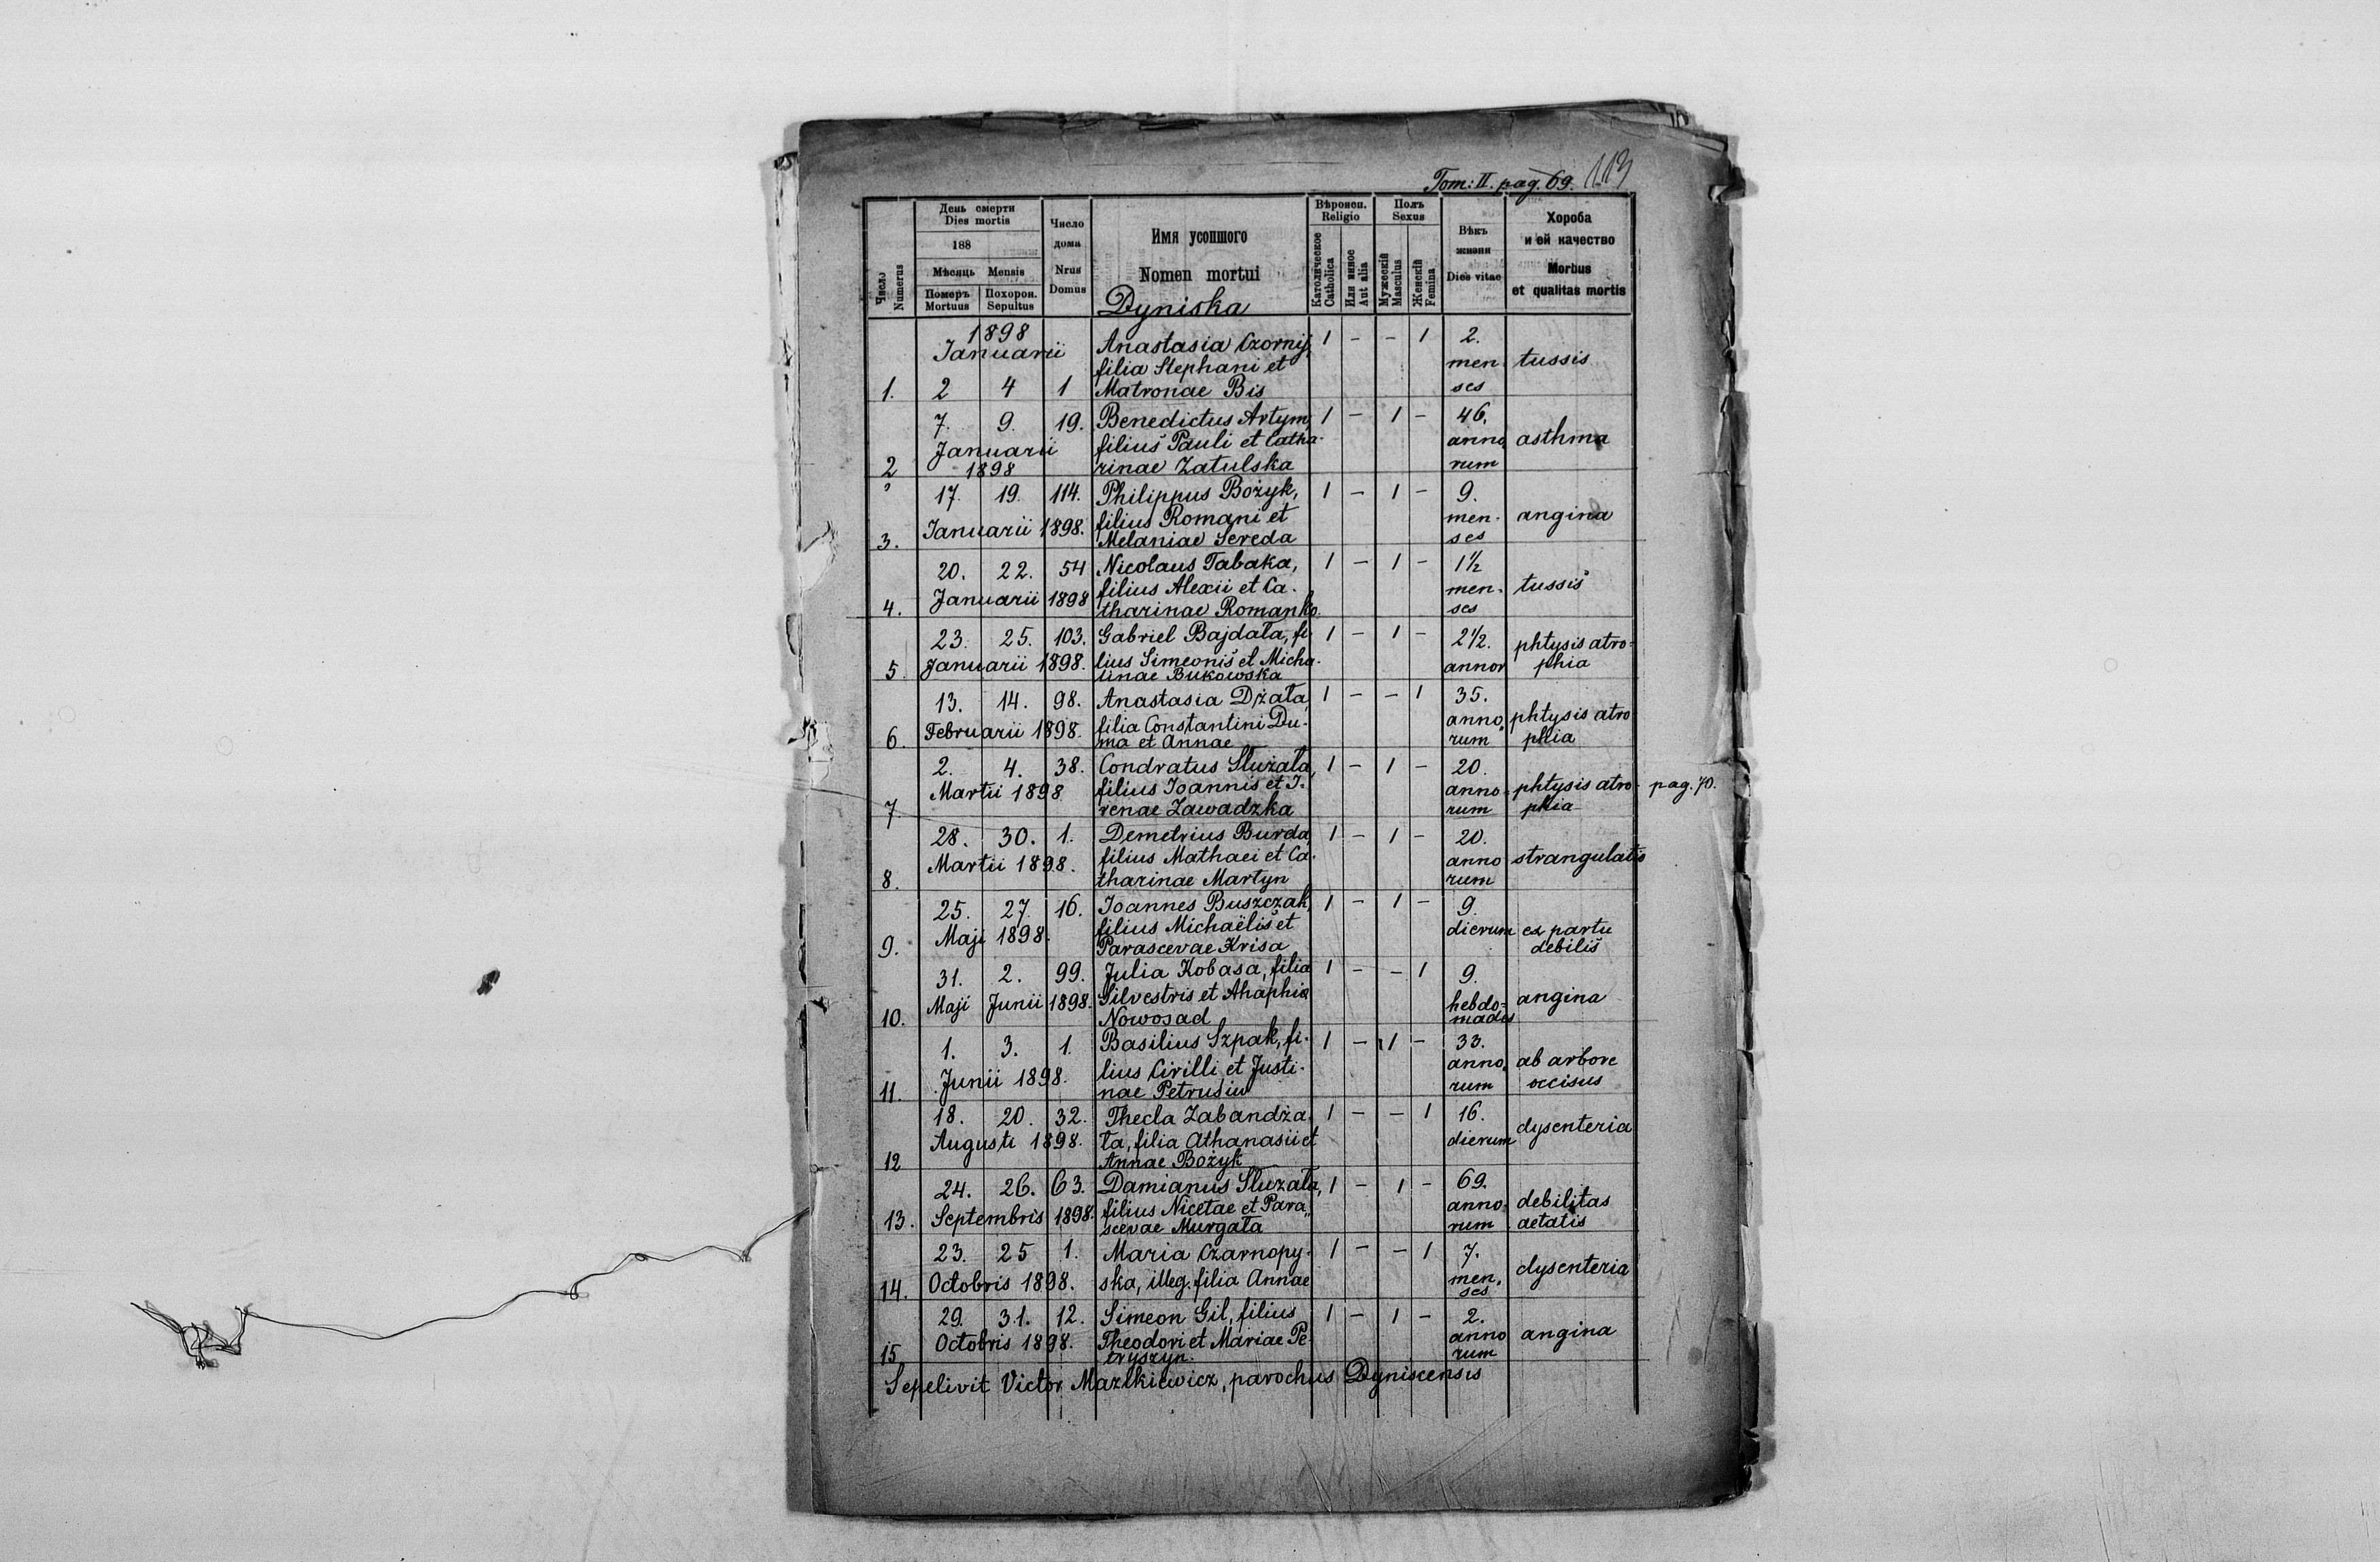 Tom: II. pag. 69. 113
День смерти
Dies mortis
188
Мѣсяць Mensis
Померъ Похорон.
Mortuus Sepultus
Число
Numerus
Число
дома
Nrus
Domus
Имя усопшого
Nomen mortui
Dyniska
Вѣроисп.
Religio
Католическое
Catholica
Или инное
Aut alia
Полъ
Sexus
Мужескій
Masculus
Женскій
Femina
Вѣкъ
жизни
Dies vitae
Хороба
и ей качество
Morbus
et qualitas mortis
1898
Januarii Anastasia Czornij, 1 - - 1 2.
filia Stephani et men tussis
1. 2 4 1 Matronae Bis ses
7. 9. 19. Benedictus Artym, 1 - 1 - 46.
Januarii filius Pauli et Catha- anno, asthma
2 1898 rinae Zatulska rum
17. 19. 114. Philippus Bożyk, 1 - 1 - 9.
3. Januarii 1898. filius Romani et men- angina
Melaniae Sereda ses
20. 22. 54 Nicolaus Tabaka, 1 - 1 - 1½
4. Januarii 1898 filius Alexii et Ca- men- tussis
tharinae Romanko. ses
23. 25. 103. Gabriel Bajdała, fi- 1 - 1 - 2½. phtysis atro-
5. Januarii 1898. lius Simeonis et Micha- annor phia
linae Bukowska
13. 14. 98. Anastasia Dżała, 1 - - 1 35.
6. Februarii 1898. filia Constantini Du- anno, phtysis atro
ma et Annae rum phia
2. 4. 38. Condratus Służała, 1 - 1 - 20.
Martii 1898 filius Joannis et I- anno- phtysis atro- pag. 70.
7 renae Zawadzka rum phia
28. 30. 1. Demetrius Burda, 1 - 1 - 20.
Martii 1898. filius Mathaei et Ca- anno strangulatio
8. tharinae Martyn rum
25. 27. 16. Joannes Buszczak, 1 - 1 - 9.
9. Maji 1898. filius Michaëlis et dierum ex partu
Parascevae Krisa debilis
31. 2. 99. Julia Kobasa, filia 1 - - 1 9.
10. Maji Junii 1898. Silvestris et Ahaphia hebdo- angina
Nowosad mades
1. 3. 1. Basilius Szpak, fi- 1 - 1 - 33.
Junii 1898. lius Cirilli et Justi- anno, ab arbore
11. nae Petrusiw rum occisus
18. 20. 32. Thecla Zabandża- 1 - - 1 16.
Augusti 1898. ła, filia Athanasii et dierum dysenteria
12 Annae Bożyk
24. 26. 63. Damianus Służała, 1 - 1 - 69.
13. Septembris 1898. filius Nicetae et Para„ anno- debilitas
scevae Murgała rum aetatis
23. 25 1. Maria Czarnopy- 1 - - 1 7.
14. Octobris 1898. ska, illeg. filia Annae men, dysenteria
ses
29. 31. 12. Simeon Gil, filius 1 - 1 - 2.
15 Octobris 1898. Theodori et Mariae Pe- anno angina
tryszyn. rum
Sepelivit Victor Mazikiewicz, parochus Dyniscensis